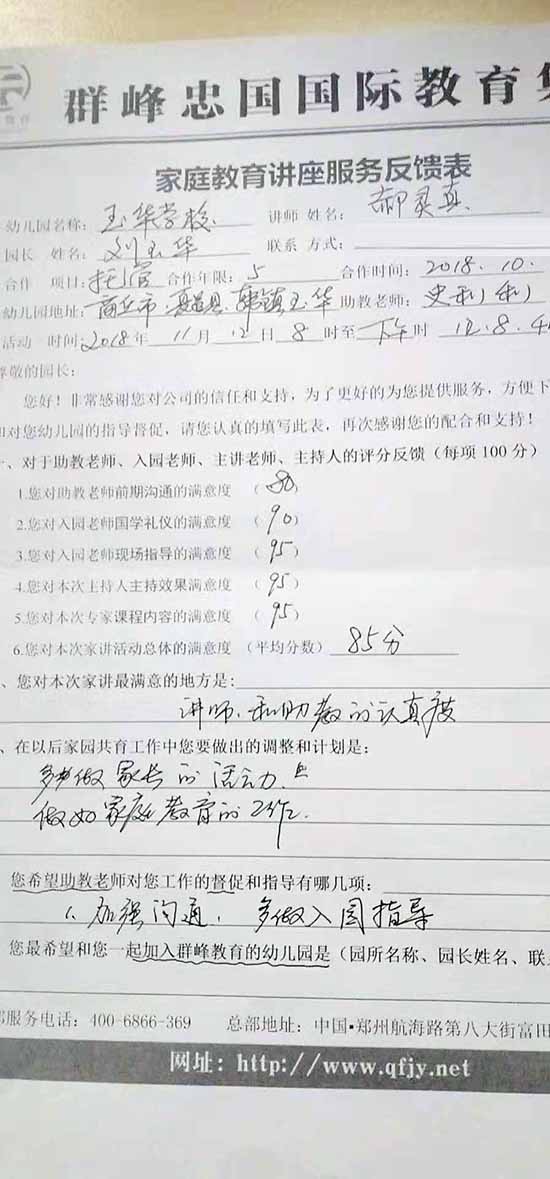 群峰忠国国际教育
家庭教育讲座服务反馈表
幼儿园名称: 玉华学校 讲师 姓名: 郝灵真
园长 姓名: 刘玉华 联系 方式:
合作 项目: 托管 合作年限: 5 合作时间: 2018.10.
幼儿园地址: 商丘市 镇玉华 助教老师: 史利利
活动 时间: 2018年 11月 12日 8 时至 下午 时 12.8.
尊敬的园长:
您好!非常感谢您对公司的信任和支持,为了更好的为您提供服务,方便下
和对您幼儿园的指导督促,请您认真的填写此表,再次感谢您的配合和支持!
一、对于助教老师、入园老师、主讲老师、主持人的评分反馈(每项100分)
1.您对助教老师前期沟通的满意度 (80)
2.您对入园老师国学礼仪的满意度 (90)
3.您对入园老师现场指导的满意度 (95)
4.您对本次主持人主持效果满意度 (95)
5.您对本次专家课程内容的满意度 (95)
6.您对本次家讲活动总体的满意度 (平均分数) 85分
、您对本次家讲最满意的地方是:
讲师.和助教的认真度
、在以后家园共育工作中您要做出的调整和计划是:
多做家长的活动.
做好家庭教育的工作.
您希望助教老师对您工作的督促和指导有哪几项:
1、加强沟通,多做入园指导
您最希望和您一起加入群峰教育的幼儿园是(园所名称、园长姓名、联
部服务电话: 400-6866-369 总部地址: 中国·郑州航海路第八大街富田
网址: http://www.qfjy.net